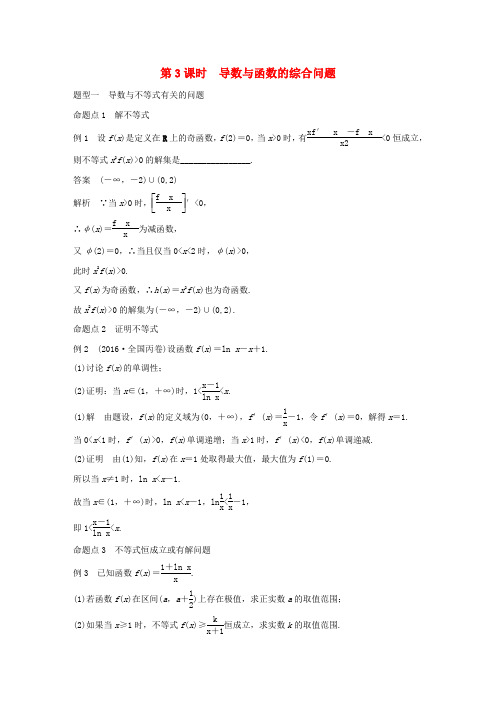 第3课时　导数与函数的综合问题
题型一　导数与不等式有关的问题
命题点1　解不等式
例1　设f(x)是定义在R上的奇函数，f(2)＝0，当x>0时，有xf′　x　－f　x　x2<0恒成立，
则不等式x²f(x)>0的解集是________________.
答案　(－∞，－2)∪(0,2)
解析　∵当x>0时，[f　x　x]′<0，
∴φ(x)＝f　x　x为减函数，
又φ(2)＝0，∴当且仅当0<x<2时，φ(x)>0，
此时x²f(x)>0.
又f(x)为奇函数，∴h(x)＝x²f(x)也为奇函数.
故x²f(x)>0的解集为(－∞，－2)∪(0,2).
命题点2　证明不等式
例2　(2016·全国丙卷)设函数f(x)＝ln x－x＋1.
(1)讨论f(x)的单调性；
(2)证明：当x∈(1，＋∞)时，1<x－1ln x<x.
(1)解　由题设，f(x)的定义域为(0，＋∞)，f′(x)＝1x－1，令f′(x)＝0，解得x＝1.
当0<x<1时，f′(x)>0，f(x)单调递增；当x>1时，f′(x)<0，f(x)单调递减.
(2)证明　由(1)知，f(x)在x＝1处取得最大值，最大值为f(1)＝0.
所以当x≠1时，ln x<x－1.
故当x∈(1，＋∞)时，ln x<x－1，ln1x<1x－1，
即1<x－1ln x<x.
命题点3　不等式恒成立或有解问题
例3　已知函数f(x)＝1＋ln xx.
(1)若函数f(x)在区间(a，a＋12)上存在极值，求正实数a的取值范围；
(2)如果当x≥1时，不等式f(x)≥kx＋1恒成立，求实数k的取值范围.